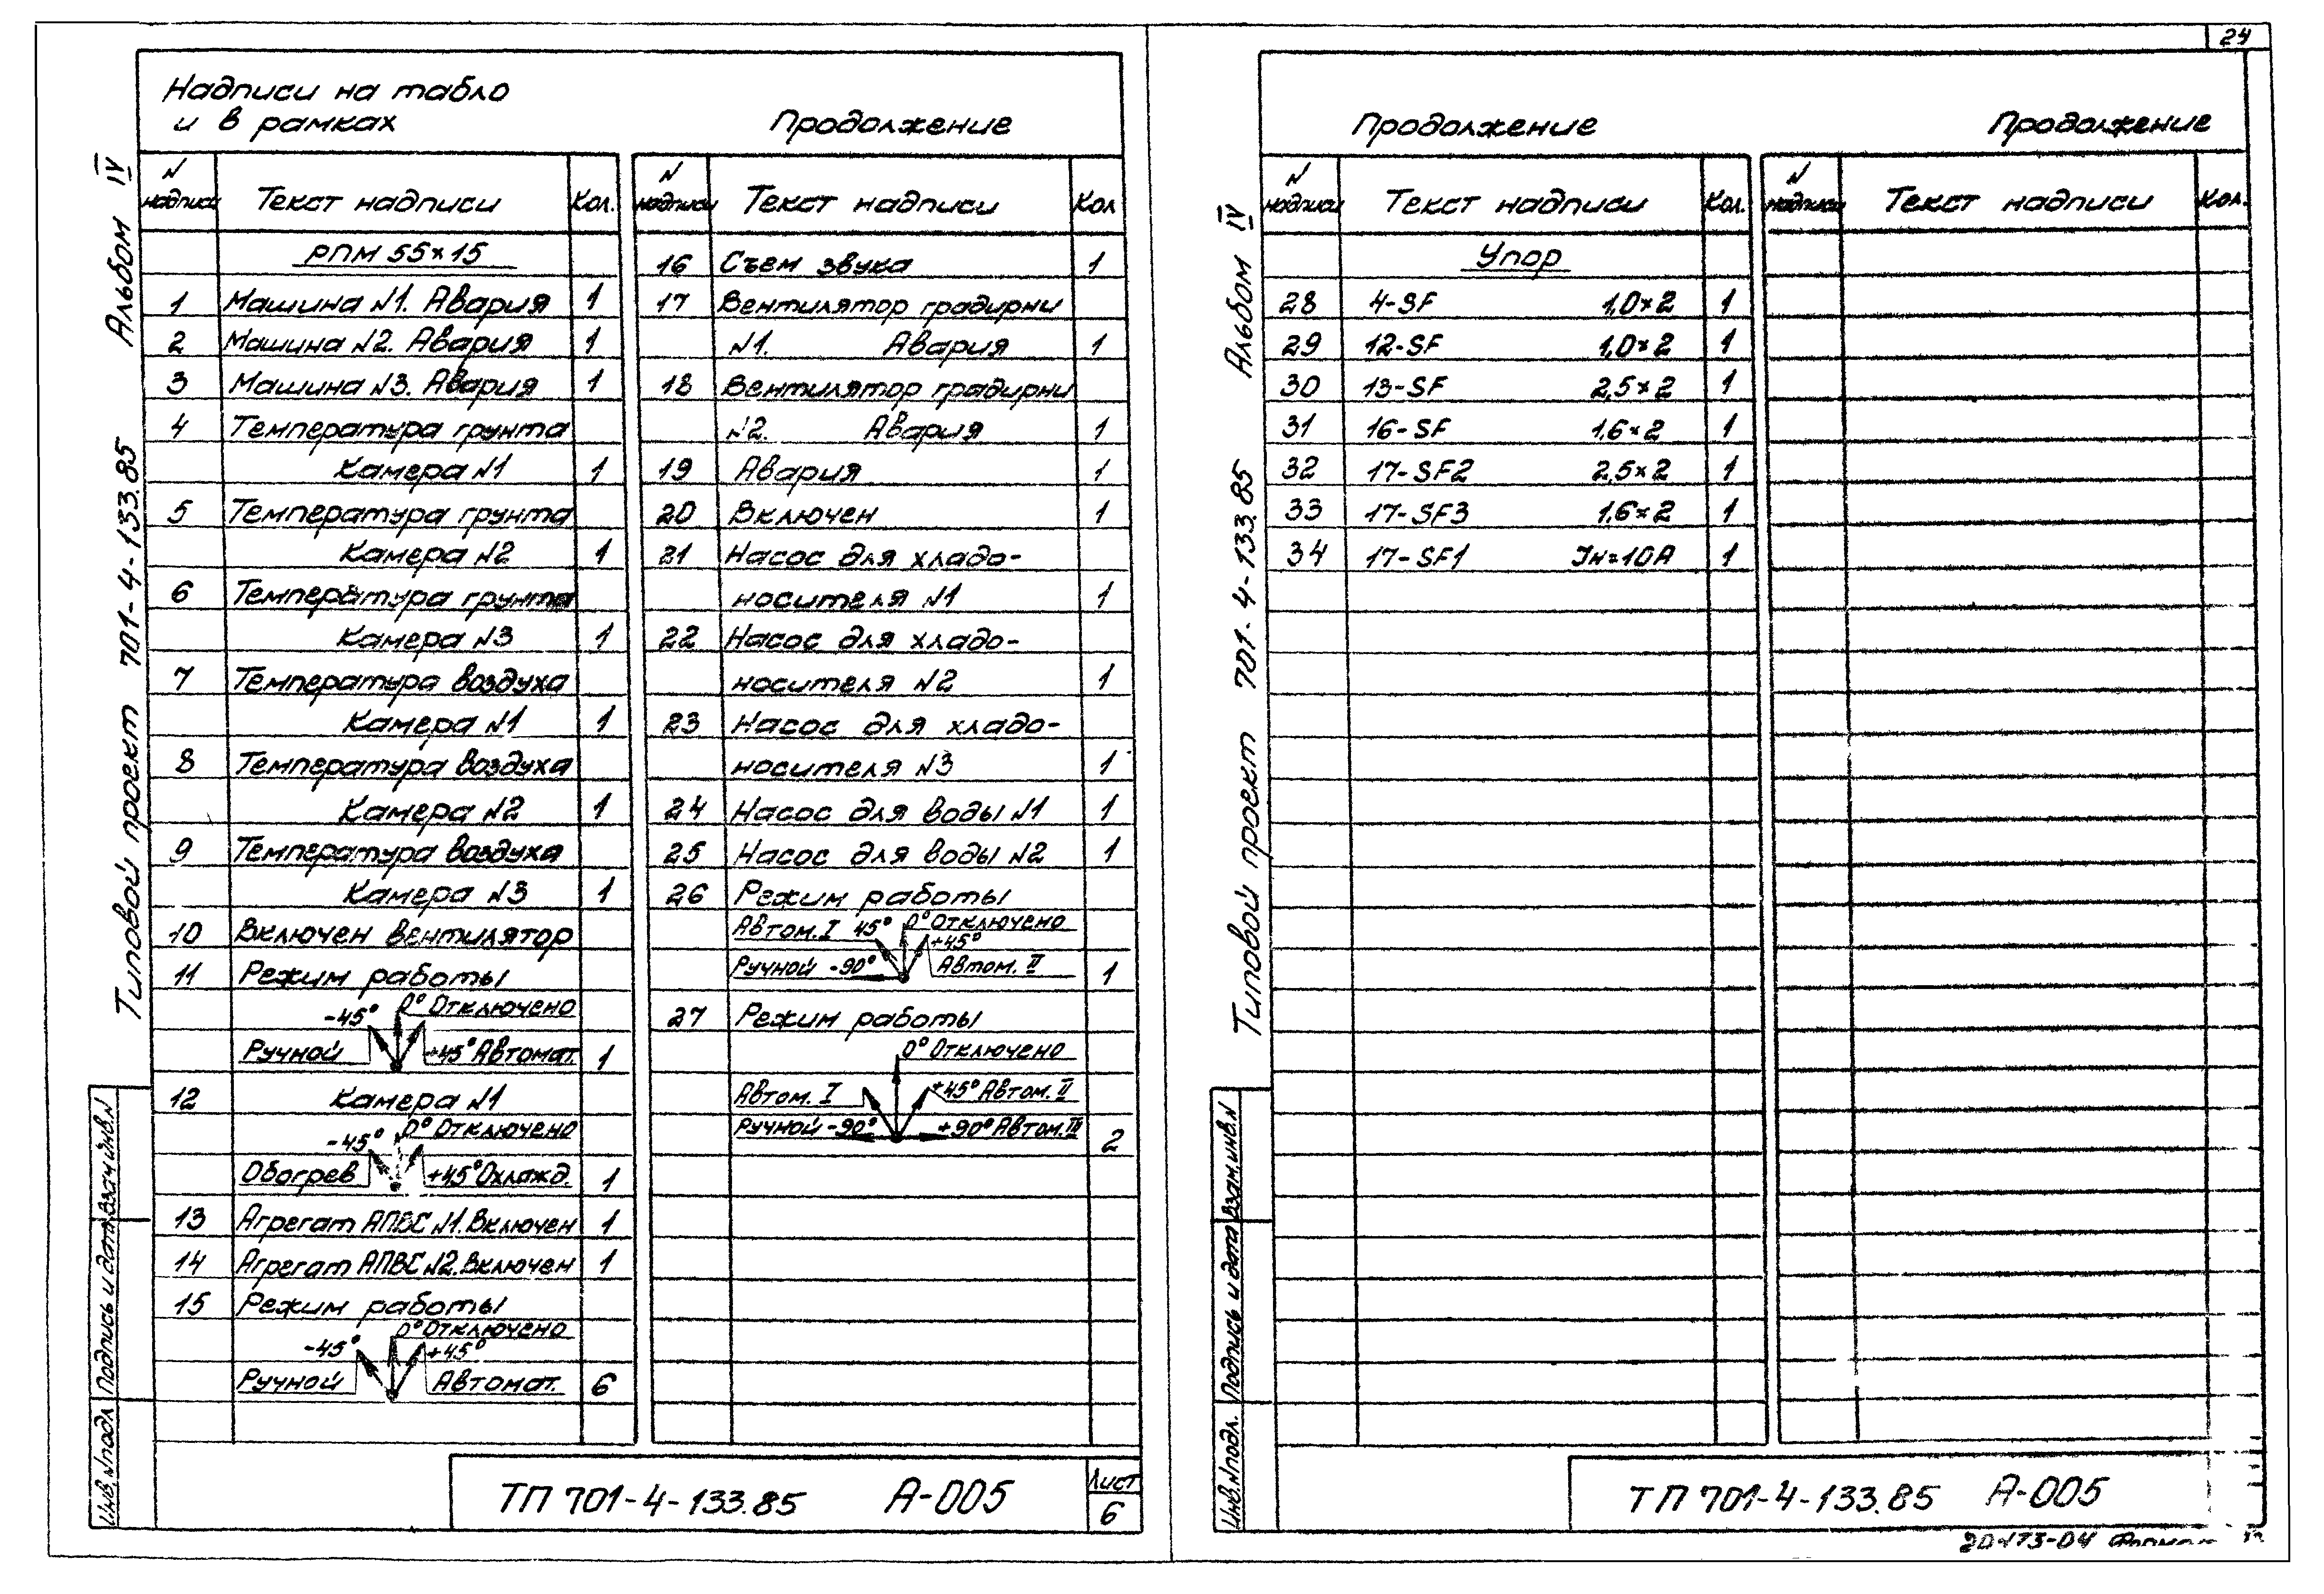 24
Надписи на табло
и в рамках
Продолжение
N надписи Текст надписи Кол.
РПМ 55×15
1 Машина N1. Авария 1
2 Машина N2. Авария 1
3 Машина N3. Авария 1
4 Температура грунта
Камера N1 1
5 Температура грунта
Камера N2 1
6 Температура грунта
Камера N3 1
7 Температура воздуха
Камера N1 1
8 Температура воздуха
Камера N2 1
9 Температура воздуха
Камера N3 1
10 Включен вентилятор
11 Режим работы
-45° 0° Отключено
Ручной +45° Автомат. 1
12 Камера N1
-45° 0° Отключено
Обогрев +45° Охлажд. 1
13 Агрегат АПВС N1. Включен 1
14 Агрегат АПВС N2. Включен 1
15 Режим работы
0° Отключено
-45° +45°
Ручной Автомат. 6
N надписи Текст надписи Кол
16 Съем звука 1
17 Вентилятор градирни
N1. Авария 1
18 Вентилятор градирни
N2. Авария 1
19 Авария 1
20 Включен 1
21 Насос для хладо-
носителя N1 1
22 Насос для хладо-
носителя N2 1
23 Насос для хладо-
носителя N3 1
24 Насос для воды N1 1
25 Насос для воды N2 1
26 Режим работы
Автом. I 45° 0° Отключено
+45°
Ручной -90° Автом. II 1
27 Режим работы
0° Отключено
Автом. I +45° Автом. II
Ручной -90° +90° Автом. III 2
ТП 701-4-133.85 А-005
Лист
6
Типовой проект 701-4-133.85 Альбом IV
Инв. N подл Подпись и дата Взам. инв. N
Продолжение
Продолжение
N надписи Текст надписи Кол.
Упор
28 4-SF 1,0×2 1
29 12-SF 1,0×2 1
30 13-SF 2,5×2 1
31 16-SF 1,6×2 1
32 17-SF2 2,5×2 1
33 17-SF3 1,6×2 1
34 17-SF1 Iн=10А 1
N надписи Текст надписи Кол.
ТП 701-4-133.85 А-005
Типовой проект 701-4-133.85 Альбом IV
Инв. N подл. Подпись и дата Взам. инв. N
20173-04